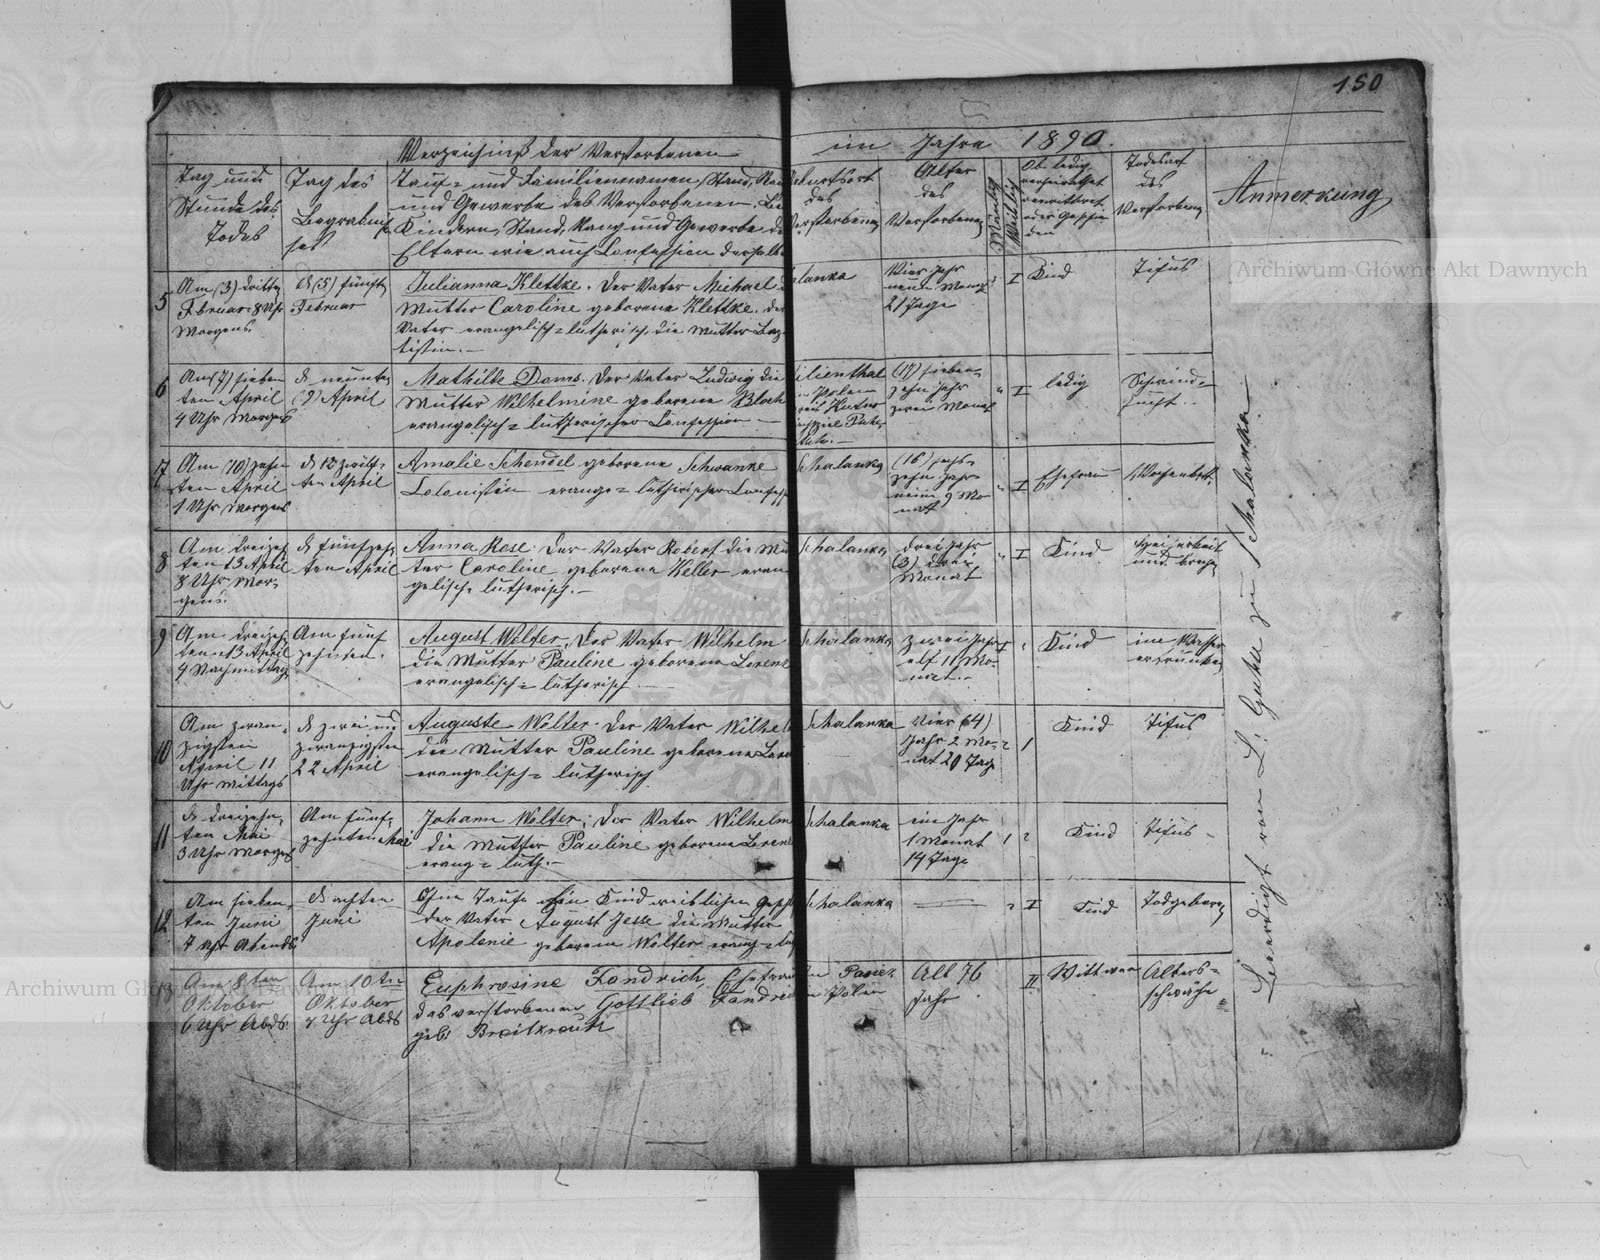 150
Verzeichniß der Verstorbenen
im Jahre 1890.
Tag und
Stunde des
Todes
Tag des
Begräbnis-
ses
Tauf- und Familiennamen, Stand,
und Gewerbe des Verstorbenen. Bei
Kindern, Stand, Rang und Gewerbe de
Eltern wie auch Confession derselb
burtsort
des
Verstorbenen
Alter
des
Verstorbenen
Männlich
Weiblich
Ob ledig
verheirathet
verwittwet
oder geschie
den
Todesart
des
Verstorbenen
Anmerkung
5
Am (3) dritten
Februar 8 Uhr
Morgens
d (5) fünft
Februar
Julianna Klettke. Der Vater Michael
Mutter Caroline geborene Klettke. Der
Vater evangelisch-lutherisch, die Mutter Bap
tistin.
lanka
Vier Jahr
neun Monat
21 Tage
I
Kind
Tifus
6
Am (7) sieben
ten April
4 Uhr Morgens
d neunten
(9) April
Mathilde Doms. Der Vater Ludwig die
Mutter Wilhelmine geborene Bloch
evangelisch-lutherischer Confession
ilienthal
Polen
(17) sieben-
zehn Jahr
zwei Monat
I
ledig
Schwind-
sucht.
7
Am (10) zehn
ten April
1 Uhr Morgens
d 12 zwölf-
ten April
Amalie Schendel geborene Schwanke
Colonistin evang-lutherischer Confess
Schalanka
(16) sechs-
zehn Jahr
neun 9 Mo
nat
I
Ehefrau
Wochenbett.
8
Am dreizeh
ten 13 April
8 Uhr Mor-
gens.
d fünfzeh-
ten April
Anna Rose. Der Vater Robert die Mu
ter Caroline geborene Keller evan
gelisch lutherisch.
Schalanka
drei Jahr
(3) drei
Monat
I
Kind
9
Am dreizeh
ten 13 April
4 Nachmittag
Am fünf
zehnten.
August Wolter, Der Vater Wilhelm
die Mutter Pauline geborene Lorenz
evangelisch-lutherisch
Schalanka
zwei Jahr
elf 11 Mo-
nat.
I
Kind
im Wasser
ertrunken
10
Am zwan-
zigsten
April 11
Uhr Mittags
d zwei und
zwanzigsten
22 April
Auguste Wolter. Der Vater Wilhel
die Mutter Pauline geborene Lore
evangelisch-lutherisch
Schalanka
Vier (4)
Jahr 2 Mo-
nat 20 Tage
1
Kind
Tifus
11
d dreizehn
ten Mai
3 Uhr Morgens
Am fünf-
zehnten Mai
Johann Wolter; Der Vater Wilhelm
die Mutter Pauline geborene Lorenz
evang-luth.
Schalanka
ein Jahr
1 Monat
14 Tage
1
Kind
Tifus
12
Am sieben
ten Juni
7 Uhr Abends
d achten
Juni
Ohne Taufe ein Kind weiblichen Gesch
der Vater August Jesse die Mutter
Apolonie geborene Wolter evang-lu
Schalanka
I
Kind
Todgeboren
13
Am 8ten
Oktober
6 Uhr Abds.
Am 10ten
Oktober
Uhr Abds
Euphrosine Fandrich, Ehefrau
des verstorbenen Gottlieb Fandrich
geb. Breitkreutz
in Polen
Alt 76
Jahr
II
Wittwe
Alters-
schwäche
Beerdigt von L. Guhu zu Schalanka
Archiwum Główne Akt Dawnych
Archiwum Główne Akt Dawnych